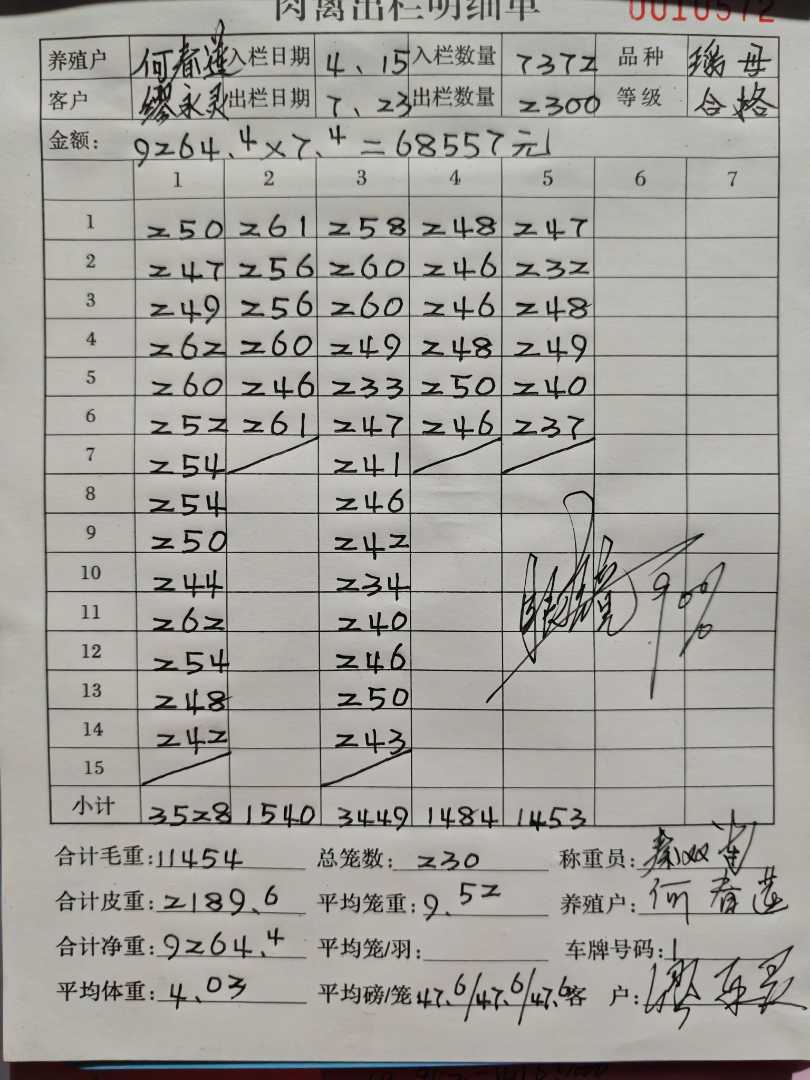 肉禽出栏明细单 0010572
养殖户 何春莲 入栏日期 4、15 入栏数量 7372 品种 瑶母
客户 缪永灵 出栏日期 7、23 出栏数量 2300 等级 合格
金额: 9264.4×7.4=68557元
1 2 3 4 5 6 7
1 250 261 258 248 247
2 247 256 260 246 232
3 249 256 260 246 248
4 262 260 249 248 249
5 260 246 233 250 240
6 252 261 247 246 237
7 254 241
8 254 246
9 250 242
10 244 234
11 262 240
12 254 246
13 248 250
14 242 243
15
小计 3528 1540 3449 1484 1453
合计毛重:11454 总笼数: 230 称重员:
合计皮重:2189.6 平均笼重:9.52 养殖户:何春莲
合计净重:9264.4 平均笼/羽: 车牌号码:
平均体重:4.03 平均磅/笼 47.6/47.6/47.6 客 户: